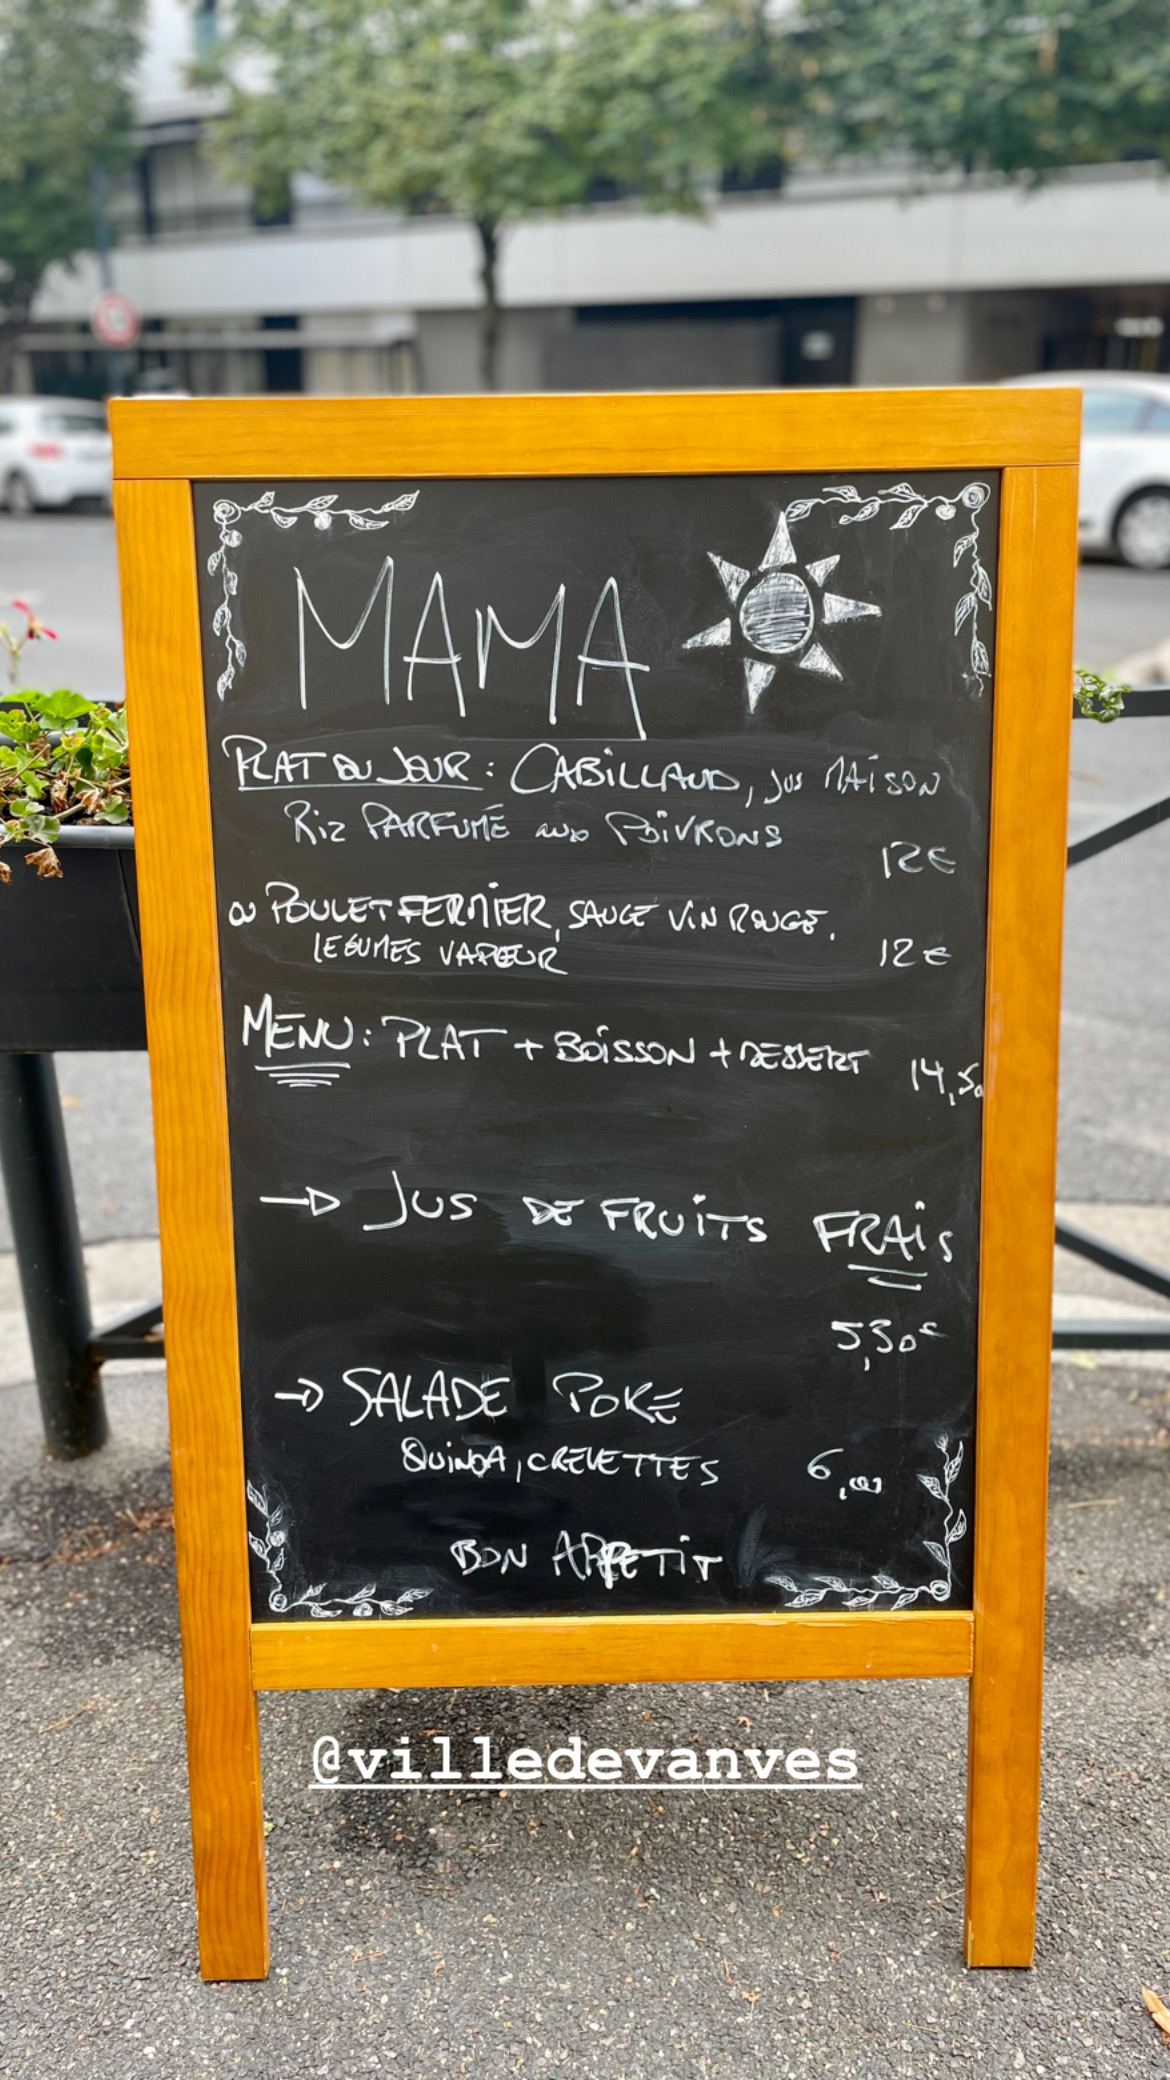 MAMA
PLAT DU JOUR : CABILLAUD, JUS MAISON
RIZ PARFUMÉ aux POIVRONS
12€
ou POULET FERMIER, SAUCE VIN ROUGE.
LEGUMES VAPEUR 12€
MENU : PLAT + BOISSON + DESSERT 14,50
→ JUS DE FRUITS FRAIS
5,30€
→ SALADE POKE
QUINOA, CREVETTES 6,00
BON APPETIT
@villedevanves